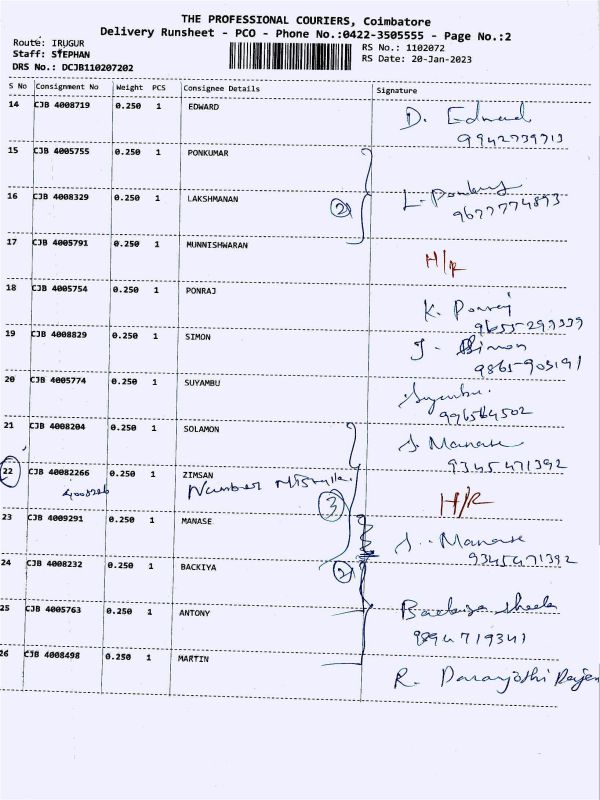 THE PROFESSIONAL COURIERS, Coimbatore
Delivery Runsheet - PCO - Phone No.:0422-3505555 - Page No.:2
Route: IRUGUR
Staff: STEPHAN
DRS No.: DCJB110207202
RS No.: 1102072
RS Date: 20-Jan-2023
S No Consignment No Weight PCS Consignee Details Signature
14 CJB 4008719 0.250 1 EDWARD D. Edward
9942739713
15 CJB 4005755 0.250 1 PONKUMAR
16 CJB 4008329 0.250 1 LAKSHMANAN 2 L.
9677774893
17 CJB 4005791 0.250 1 MUNNISHWARAN H/R
18 CJB 4005754 0.250 1 PONRAJ K. Ponraj
9655299339
19 CJB 4008829 0.250 1 SIMON J. Simon
9865903191
20 CJB 4005774 0.250 1 SUYAMBU Suyambu.
996564502
21 CJB 4008204 0.250 1 SOLAMON S. Manase
9345471392
22 CJB 40082266 0.250 1 ZIMSAN H/R
4008226 Number Mistake. 3
23 CJB 4009291 0.250 1 MANASE S. Manase
9345471392
24 CJB 4008232 0.250 1 BACKIYA 2
25 CJB 4005763 0.250 1 ANTONY Backiya sheela
9894719341
26 CJB 4008498 0.250 1 MARTIN R.